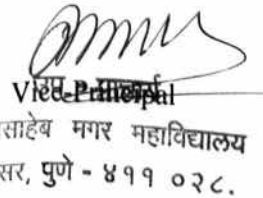 उप-प्राचार्य
Vice-Principal
साहेब मगर महाविद्यालय
सर, पुणे - ४११ ०२८.